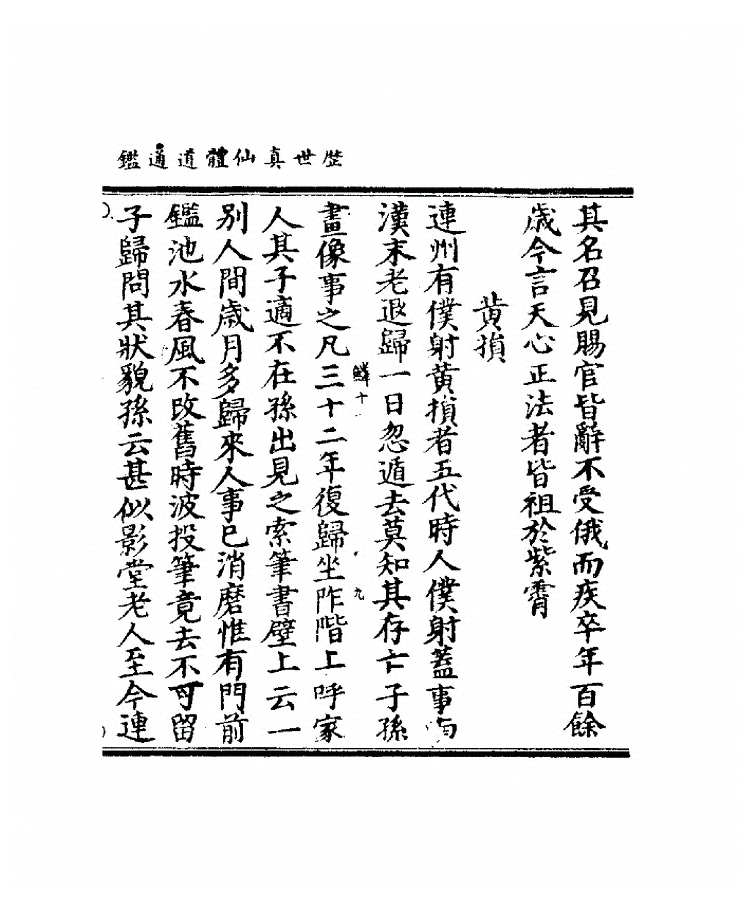 歷世真仙體道通鑑
其名召見賜官皆辭不受俄而疾卒年百餘
歲今言天心正法者皆祖於紫霄
黄損
連州有僕射黄損者五代時人僕射蓋事南
漢末老退歸一日忽遁去莫知其存亡子孫
鱗十一
九
畫像事之凡三十二年復歸坐阼階上呼家
人其子適不在孫出見之索筆書壁上云一
別人間歲月多歸來人事已消磨惟有門前
鑑池水春風不改舊時波投筆竟去不可留
子歸問其狀貌孫云甚似影堂老人至今連